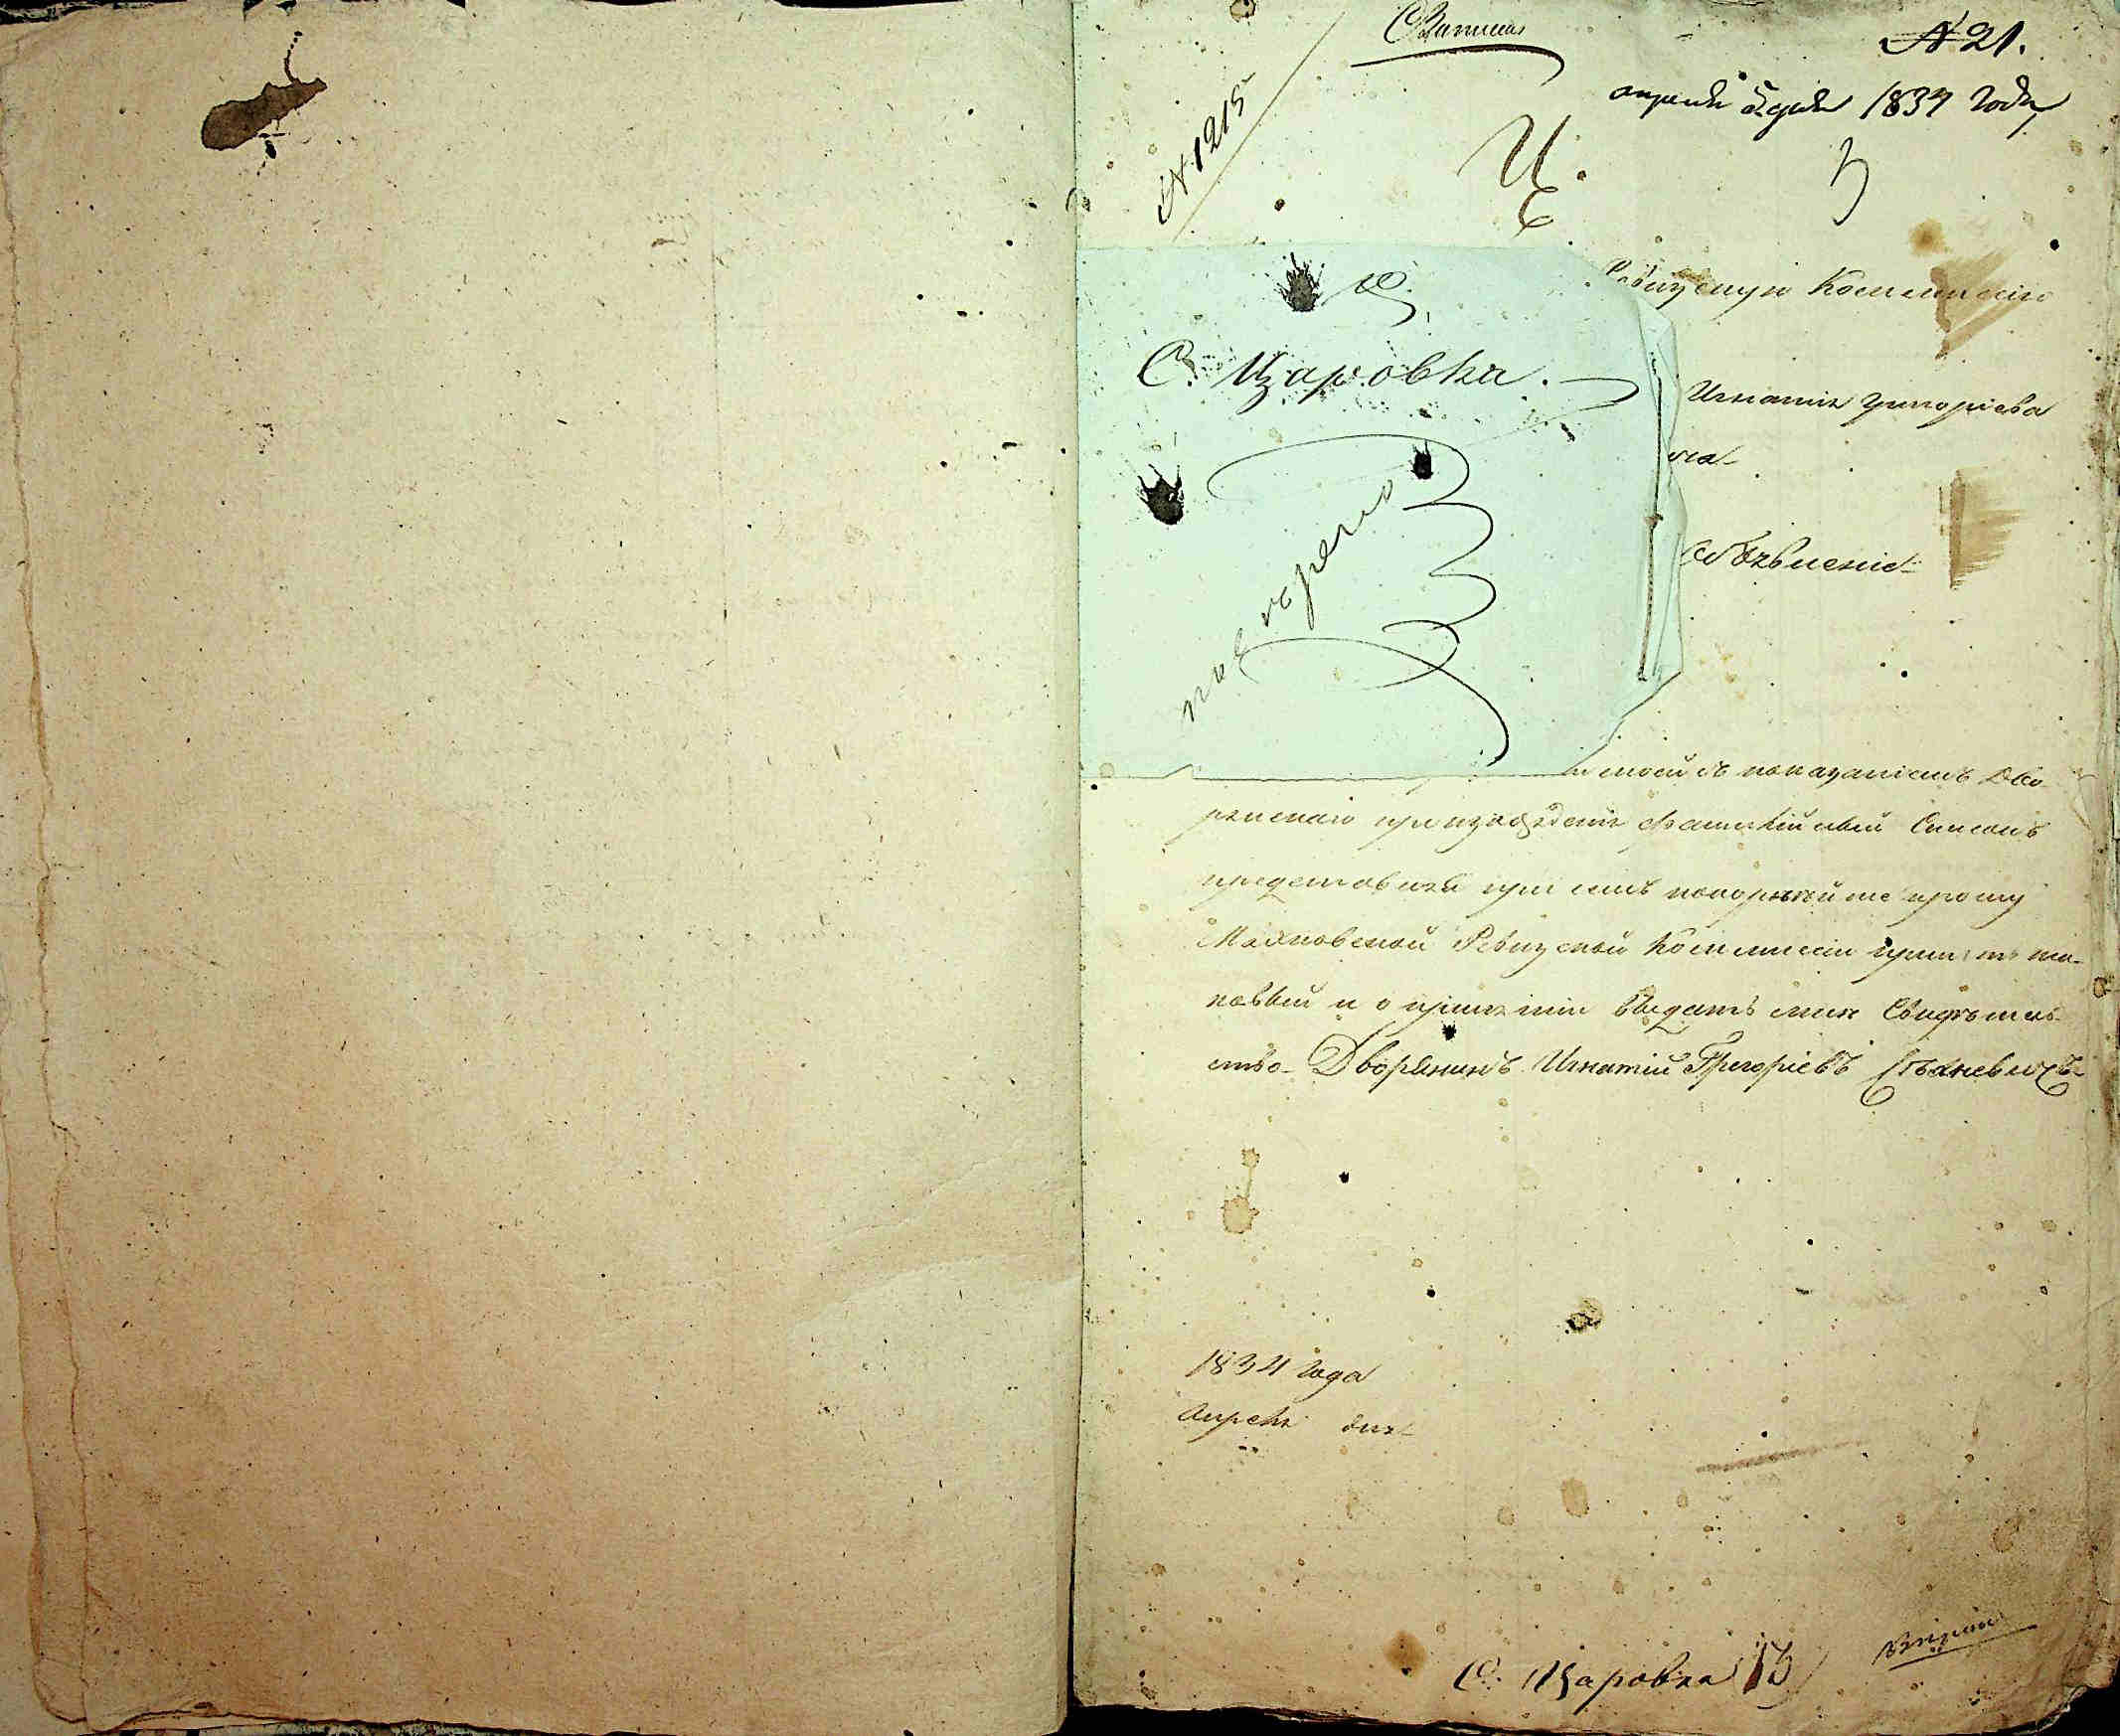 Записка
№ 21.
апреля дня 1834 года
№ 1215
Ц.
Ревизскую Коммиссію
С. Царовка.
Игнатія Григоріева
ча
Объявленіе
поверено
моей съ показаніемъ Дво
рянскаго произхожденія фамилійный Списокъ
представляя при семъ покорнѣйше прошу
Махновской Ревизской Коммиссіи принять та-
ковый и о принятіи выдать мнѣ Свидѣтель
ство Дворянинъ Игнатій Григоріевъ Стханевичъ
1834 года
Апреля дня
С. Царовка